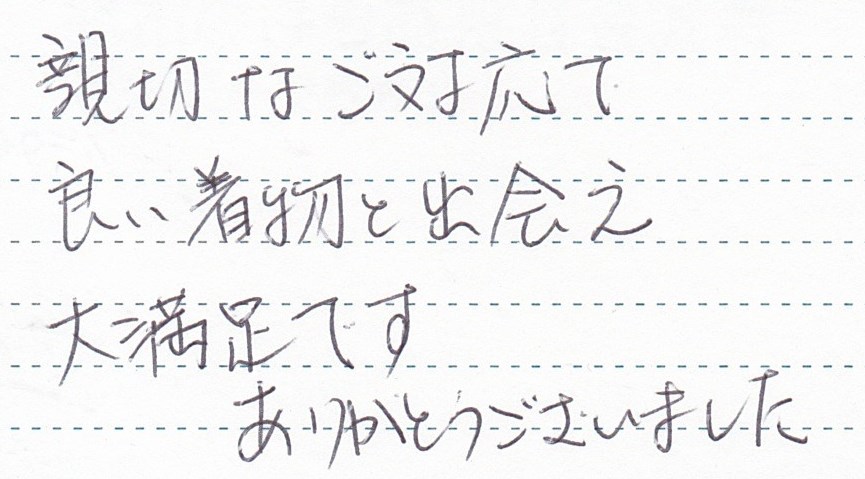 親切なご対応で
良い着物と出会え
大満足です
ありがとうございました